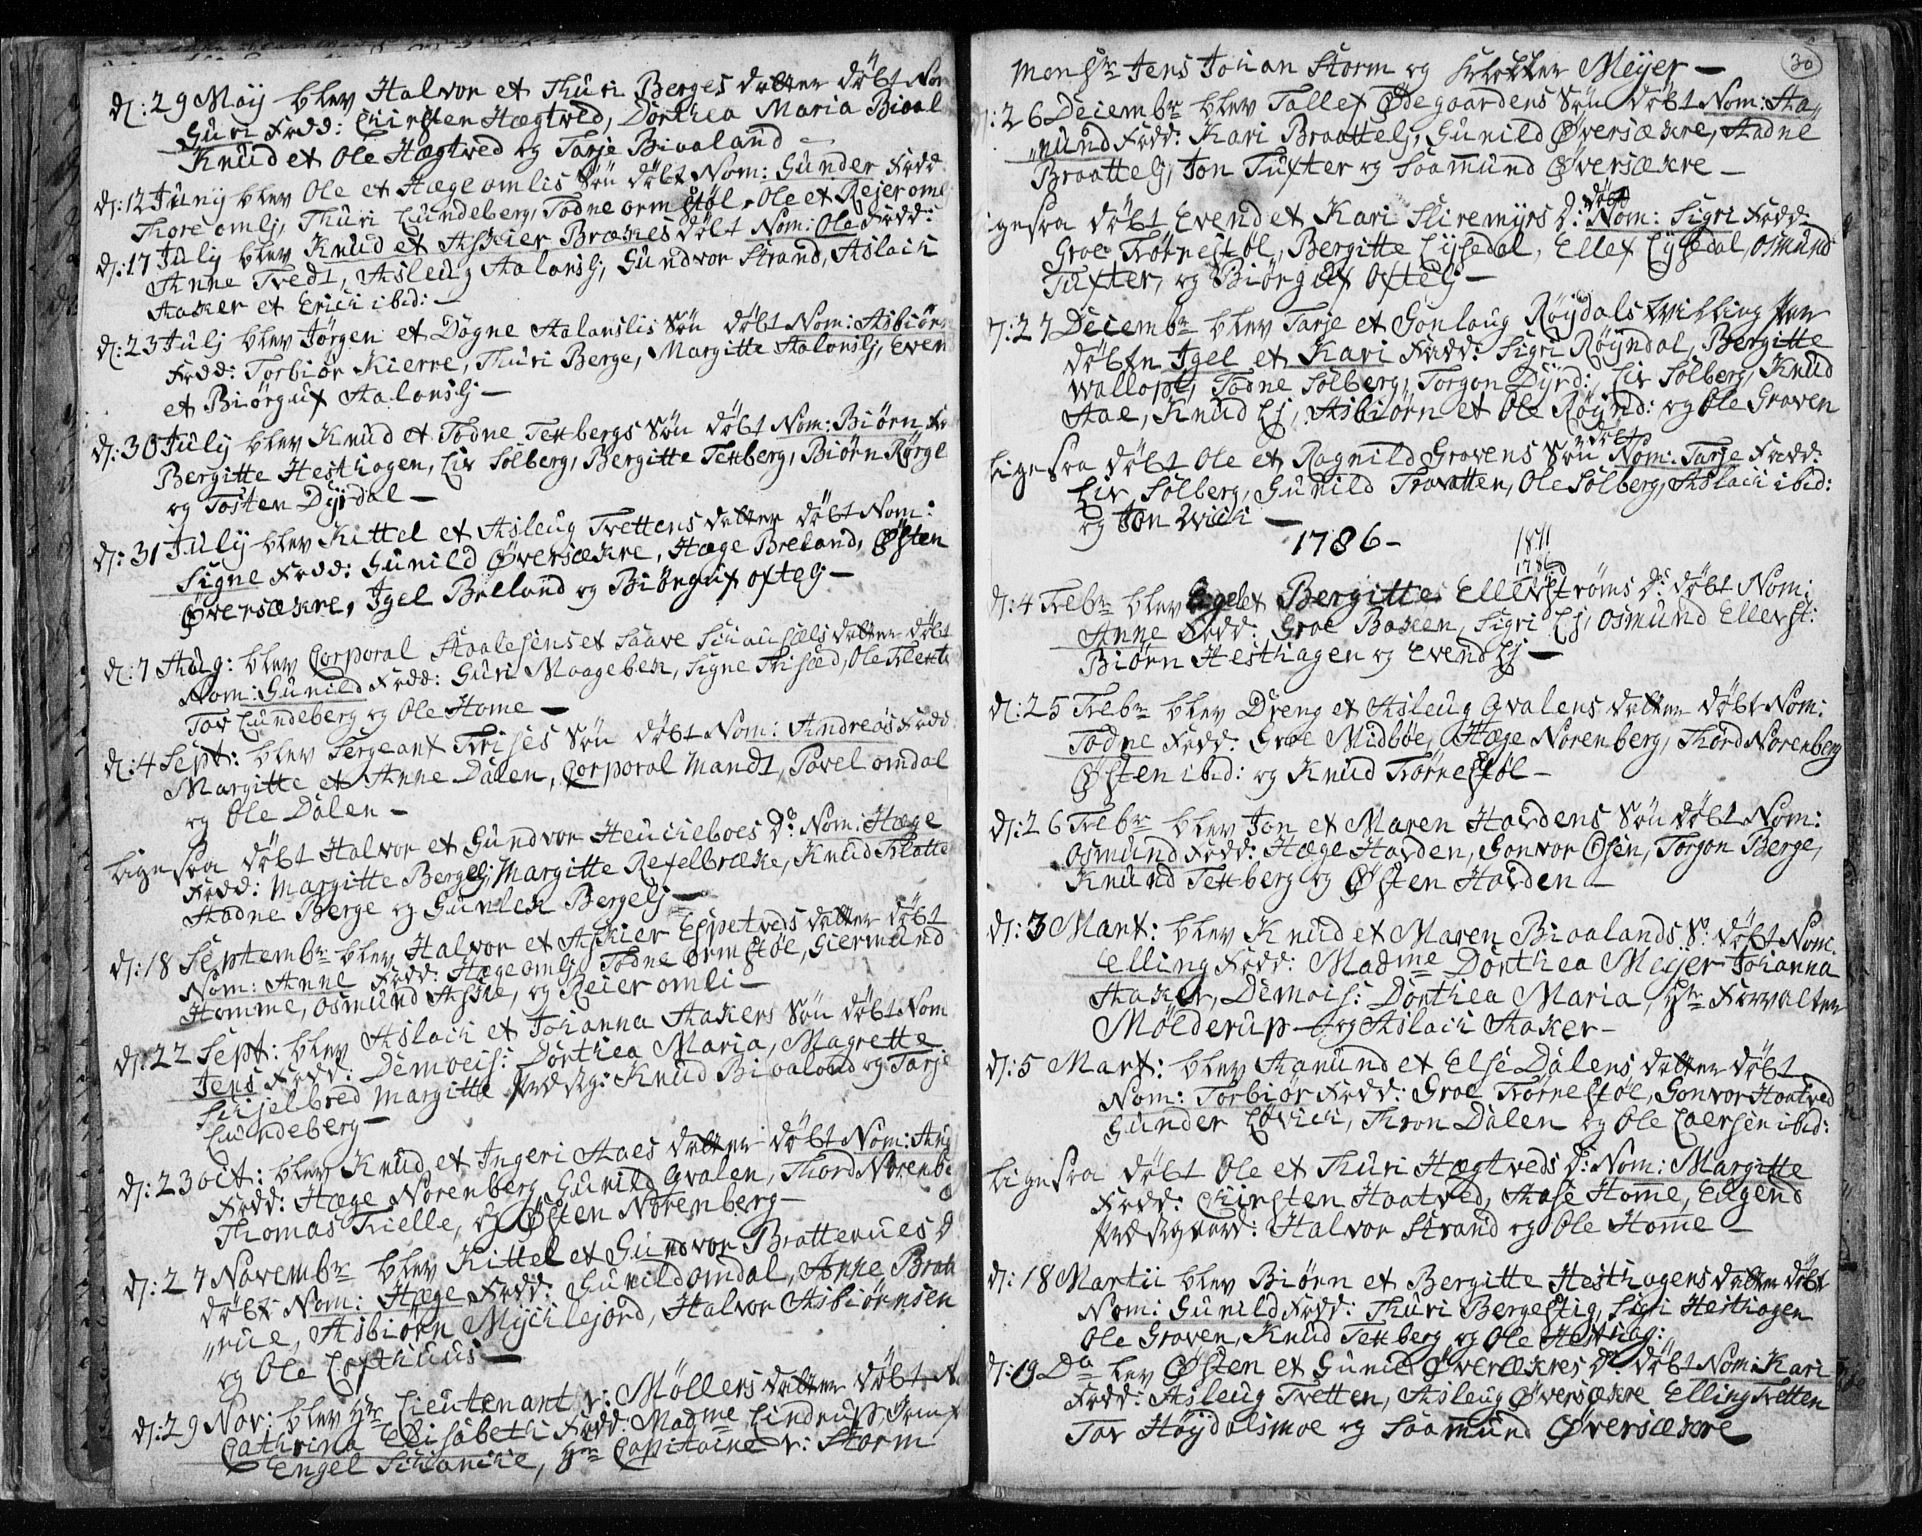 d: 29 Maij blev Halvor et Thuri Berges datter døbt Nom
Guri Fadd: Kirsten Hægtved, Dorthea Maria Bioal
Knud et Ole Hægtved og Tarje Bioaland
d: 12 Junij blev Ole et Hæge omlis Søn døbt Nom: Gunder Fadd
Thore omlj, Thuri Lundeberg, Todne ormstøl, Ole et Reier oml
d: 17 Julij blev Knud et Askier Brækes døbt Nom: Ole Fadd:
Anne Tvedt, Asleug Aalonslj, Gundvor Strand, Aslach
Aaker et Erich ibid: —
d: 23 Julj blev Jørgen et Dogne Aalonslis Søn døbt Nom: Asbiørn
Fadd: Torbiør Kierre, Thuri Berge, Margitte Aalonslj, Even
et Biørguf Aalonslj —
d: 30 July blev Knud et Todne Tekbergs Søn døbt Nom: Biørn Fa
Bergitte Hesthagen, Liv Solberg, Bergitte Tekberg, Biørn Rørge
og Tosten Dyrdal —
d: 31 Julij blev Kittel et Asleug Tvettens datter døbt Nom:
Signe Fadd: Gunild Øversækre, Hæge Breland, Østen
Øversækre, Igel Belland og Biørguf oftej —
d: 7 Aug: blev Corporal Staalesens et Saave datter døbt
Nom: Gunild Fadd: Guri Moogeben, Signe, Ole
Tov Lundeberg og Ole Home —
d: 4 Sept: blev Sergeant Friises Søn døbt Nom: Andreas Fadd
Margitte et Anne Dalen, Corporal Mandt, Povel omdal
og Ole Dalen —
ligesaa døbt Halvor et Gundvor Heuckeboes D: Nom: Hæge
Fadd: Margitte Bergelj, Margitte Refelbræke, Knud Flatte
Aadne Berge og Gunlek Bergelj —
d: 18 Septembr blev Halvor et Askier Espetveds datter døbt
Nom: Anne Fadd: Hæge omlj, Todne ormstøe, Giermund
Homme, Osmund Aske, og Reier omli —
d: 22 Sept: blev Aslach et Johanna Aakers Søn døbt Nom
Jens Fadd: Demoeis: Dorthea Maria, Magrette
Schjelbred Margitte Prædsg: Knud Bioaland og Tarje
Lundeberg —
d: 23 oct: blev Knud et Ingeri Aaes datter døbt Nom: Aug
Fadd: Hæge Norenberg, Gunild Qvalen, Thord Norenbe
Thomas Kielle, og Østen Norenberg —
d: 27 Novembr blev Kittel et Gundvor Brattenues D
døbt Nom: Hæge Fadd: Gunild omdal, Anne Bratt
nue, Asbiørn Mychlejord, Halvor Asbiørnsen
og Ole Lofthuus —
d: 29 Nov: blev Hr Lieutenant v: Møllers datter døbt N
Cathrina Elisabeth Fadd: Madme Lindrup, Jomf
Engel Schancke, Hr Capitaine v: Storm
30
Monsr Jens Johan Storm og Klokker Meyer —
: 26 Decembr blev Tallef Ødegaardens Søn døbt Nom: Aa
mund Fadd: Kari Braattelj, Gunild Øversækre, Aadne
Braattelj, Jon Tufter og Saamund Øversækre —
døbt
igesaa døbt Evend et Kari Sliremyrs D: Nom: Sigri Fadd:
Groe Trønestøl, Bergitte Lysedal, Ellef Lysedal, Osmund
Tufter, og Biørguf oftej —
d: 27 Decembr blev Tarje et Gonlaug Røydals Tvilling Par
døbte Igel et Kari Fadd: Sigri Røyndal, Bergitte
Wallopl, Todne Solberg, Torgon Dyrd:, Liv Solberg, Knud
Aae, Knud Lj, Asbiørn et Ole Røynd: og Ole Groven
ligesaa døbt Ole et Ragnild Grovens Søn Nom: Tarje Fadd:
Liv Solberg, Gunild Trovatten, Ole Solberg, Aslach ibid:
og Jon Wich —
1786 —
1811
1786
d: 4 Febr blev Bergitte Ellefstrøms D: døbt Nom:
Anne Fadd: Groe Bakken, Sigri Lj, Osmund Ellevst:
Biørn Hesthagen og Evend Lj —
d: 25 Febr blev Dreng et Asleug Qvalens datter døbt Nom:
Todne Fadd: Groe Midbøe, Hæge Norenberg, Thord Norenberg
Østen ibid: og Knud Trønestøl —
d: 26 Febr blev Jon et Maren Hovdens Søn døbt Nom:
Osmund Fadd: Hæge Hovden, Gonvor Osen, Torgon Berge,
Knund Tekberg og Østen Hovden —
d: 3 Mart: blev Knud et Maren Bioalands S: døbt Nom
Elling Fadd: Madme Dorthea Meyer Johanna
Aaker, Demois: Dorthea Maria, Hr Forvalter
Mølderup og Aslach Aaker —
d: 5 Mart: blev Aanund et Else Dalens datter døbt
Nom: Torbiør Fadd: Groe Trønestøl, Gonvor Haatved
Gunder Lovich, Tron Dalen og Ole Laersen ibid:
ligesaa døbt Ole et Thuri Hægtveds D: Nom: Margitte
Fadd: Kirsten Haatved, Aase Home, Eugend
Prædsgaard: Halvor Strand og Ole Home —
d: 18 Martii blev Biørn et Bergitte Hesthagens datter døbt
Nom: Gunild Fadd: Thuri Bergestig, Sigri Hesthagen
Ole Groven, Knud Tekberg og Ole Hesthag:
d: 19 Do blev Østen et Gunild Øversækres D: døbt Nom: Kari
Fadd: Asleug Tvetten, Asleug Øversækre Elling Tvetten
Tov Høydalsmoe og Saamund Øversækre